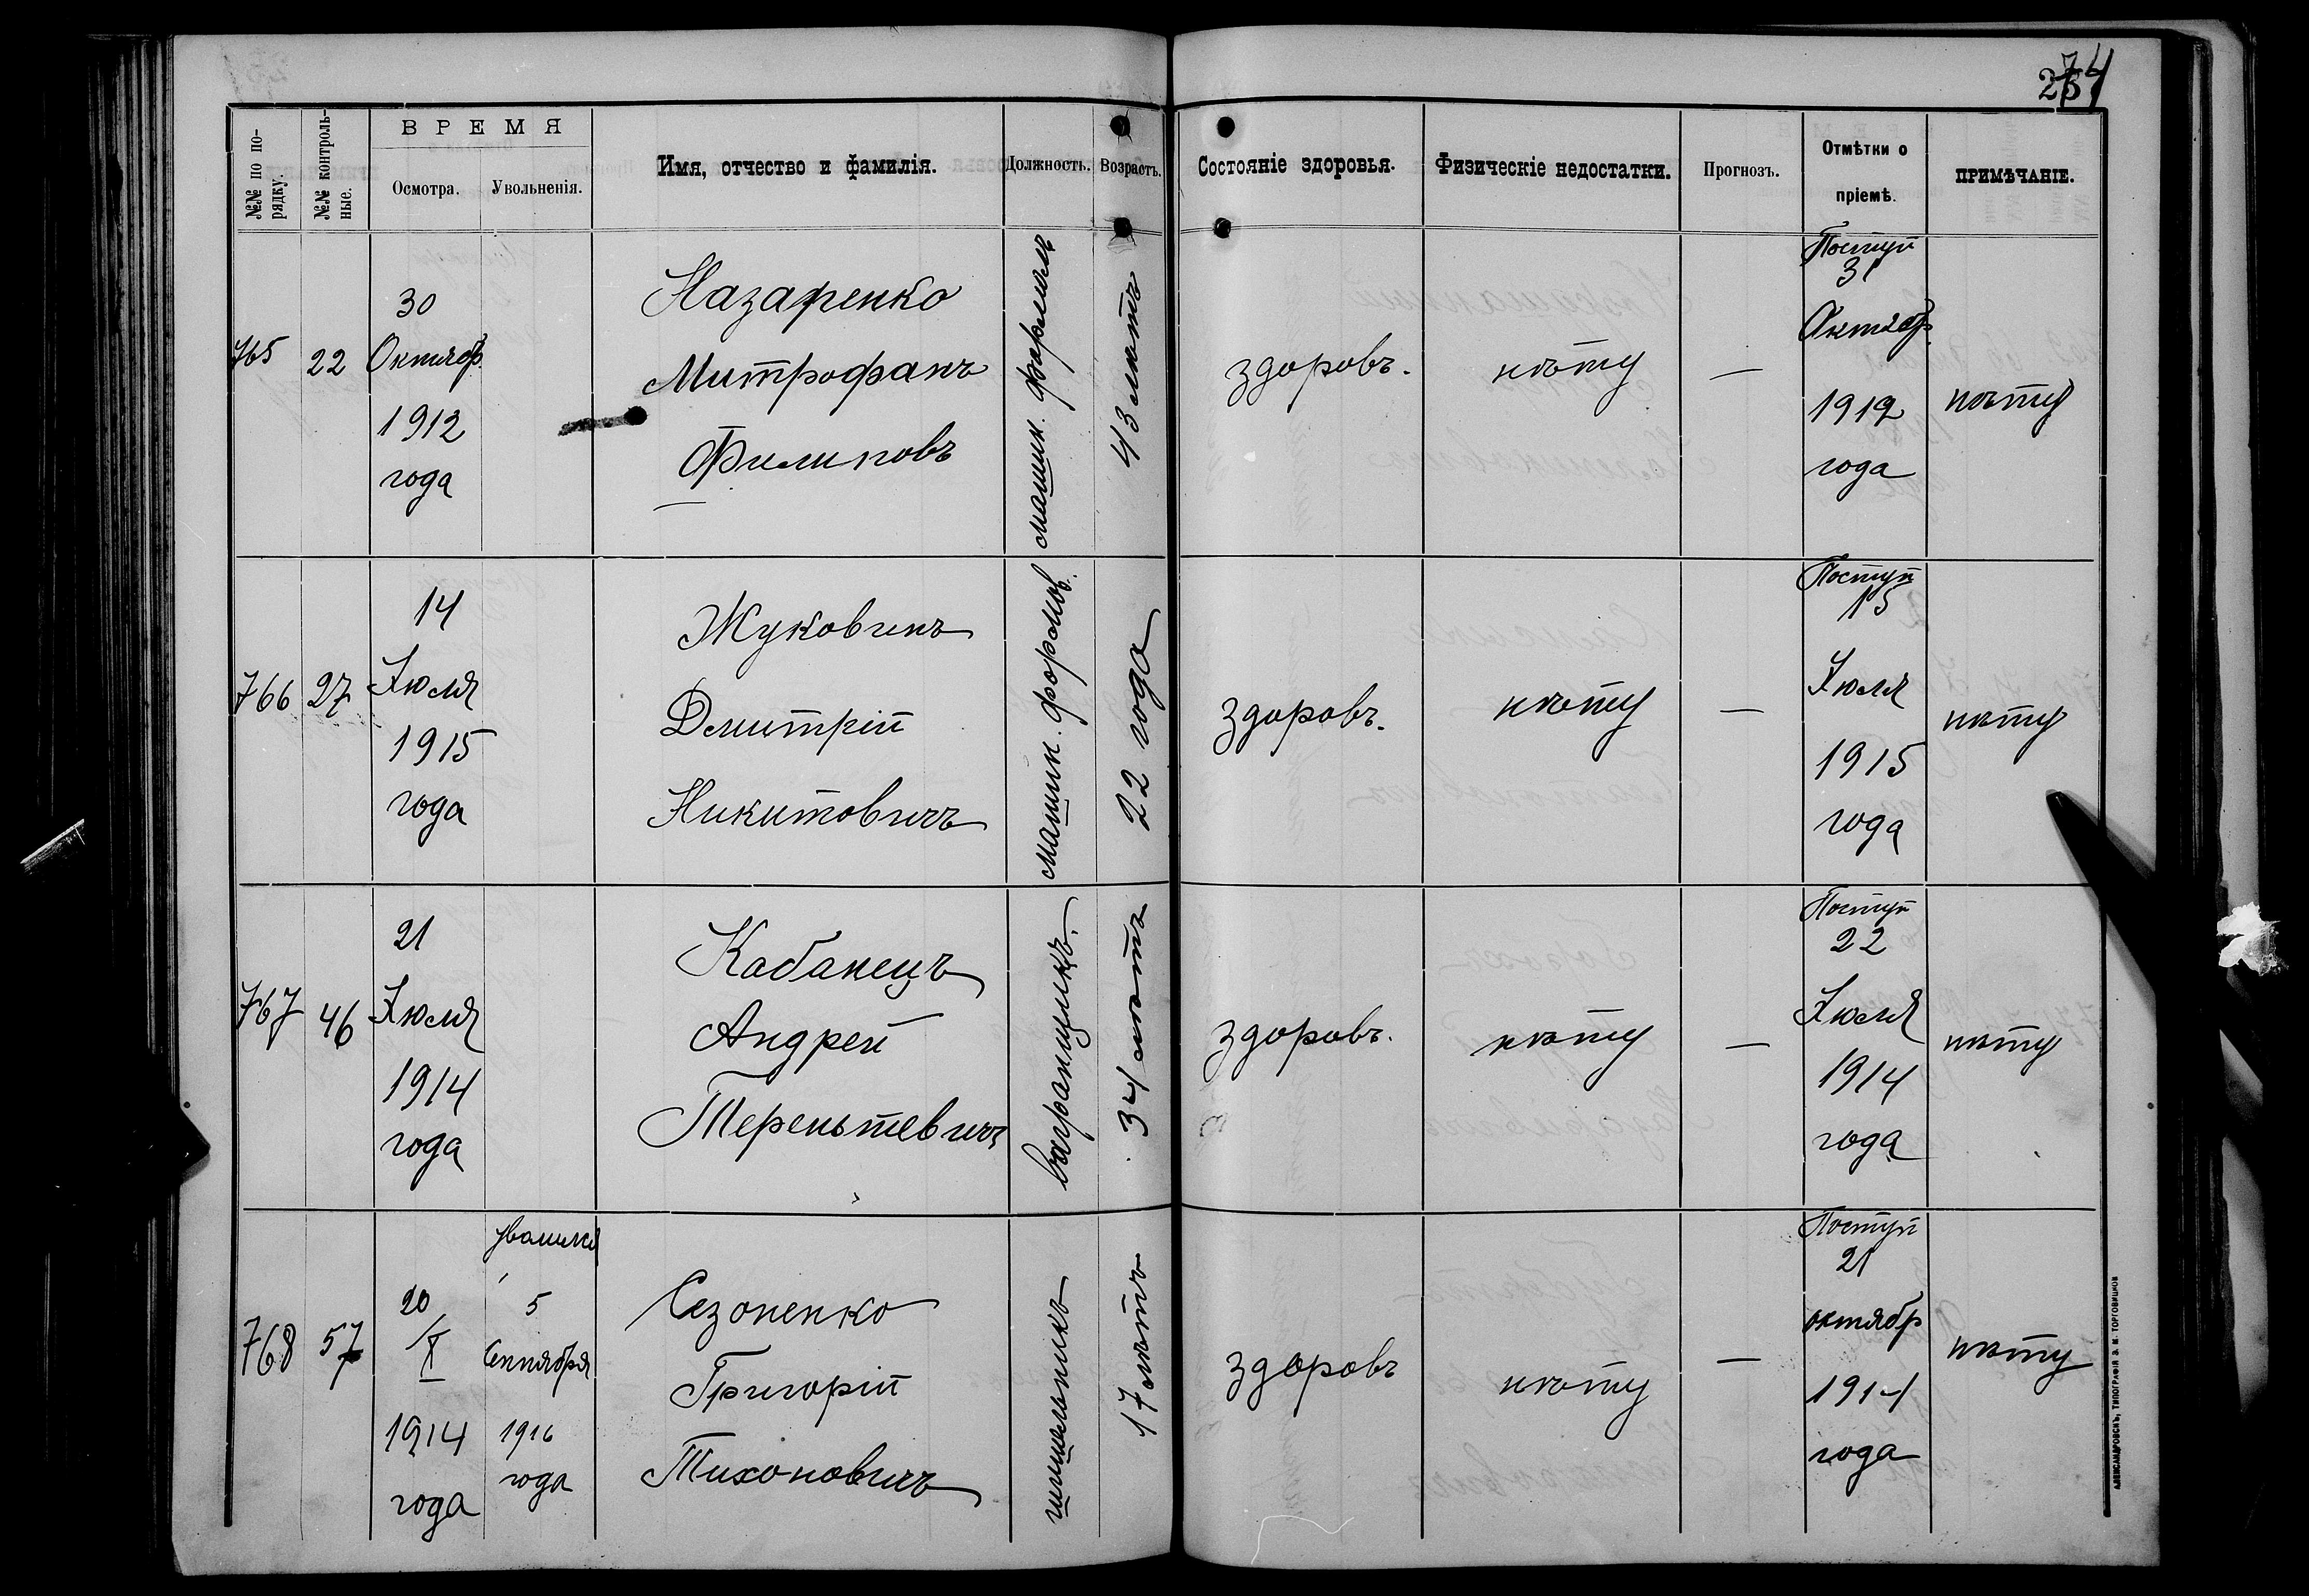 274
№№ по по-
рядку.
№№ контроль-
ные.
ВРЕМЯ
Осмотра.
Увольненія.
Имя, отчество и фамилія.
Должность.
Возрастъ.
Состояніе здоровья.
Физическіе недостатки.
Прогнозъ.
Отмѣтки о
пріемѣ.
ПРИМѢЧАНІЕ.
765
22
30
Октябр.
1912
года
Назаренко
Митрофанъ
Филиповъ
машин.
43 лѣтъ
здоровъ.
нѣту
—
Поступ
31
Октябр.
1912
года
нѣту
766
27
14
Іюля
1915
года
Жуковинъ
Дмитрій
Никитовичъ
машин. формов.
22 года
здоровъ.
нѣту
—
Поступ
15
Іюля
1915
года
нѣту
767
46
21
Іюля
1914
года
Кабанецъ
Андрей
Терентьевичъ
вагранщикъ.
34 лѣтъ
здоровъ.
нѣту
—
Поступ
22
Іюля
1914
года
нѣту
768
57
20
X
1914
года
уволился
5
Сентября
1916
года
Сезоненко
Григорій
Тихоновичъ
шишельникъ
17 лѣтъ
здоровъ
нѣту
—
Поступ
21
октябр
1914
года
нѣту
АЛЕКСАНДРОВСКЪ, ТИПОГРАФІЯ З. М. ТОРГОВИЦКОВ